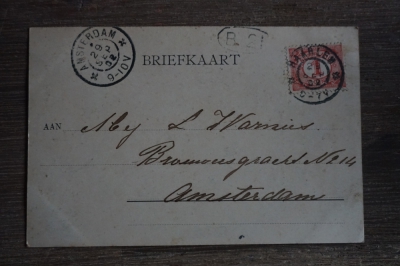 AMSTERDAM
29
9-10V
BRIEFKAART
HAARLEM
1
AAN
Mej L Warnies
Brouwersgracht No 14
Amsterdam